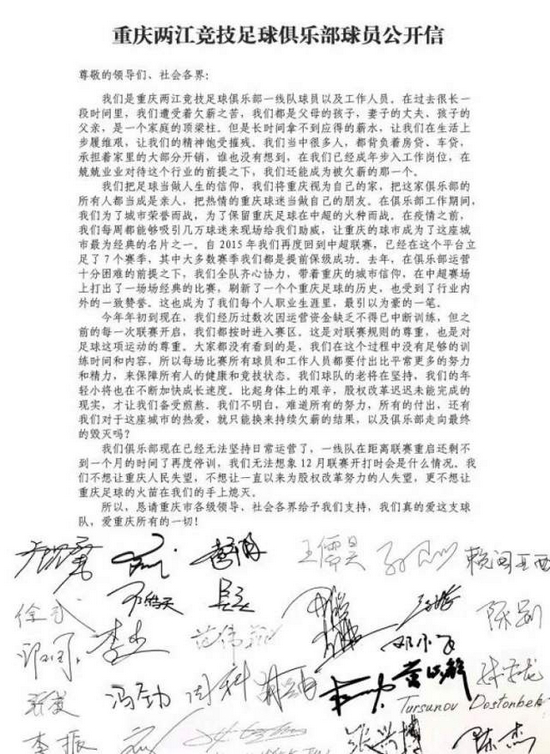 重庆两江竞技足球俱乐部球员公开信
尊敬的领导们、社会各界：
我们是重庆两江竞技足球俱乐部一线队球员以及工作人员。在过去很长一
段时间里，我们遭受着欠薪之苦，我们都是父母的孩子，妻子的丈夫、孩子的
父亲，是一个家庭的顶梁柱。但是长时间拿不到应得的薪水，让我们在生活上
步履维艰，让我们的精神饱受摧残。我们当中很多人，都背负着房贷、车贷，
承担着家里的大部分开销，谁也没有想到，在我们已经成年步入工作岗位，在
兢兢业业对待这个行业的前提之下，我们还能成为被欠薪的那一个。
我们把足球当做人生的信仰，我们将重庆视为自己的家，把这家俱乐部的
所有人都当成是亲人，把热情的重庆球迷当做自己的朋友。在俱乐部工作期间，
我们为了城市荣誉而战，为了保留重庆足球在中超的火种而战。在疫情之前，
我们每周都能够吸引几万球迷来现场给我们助威，让重庆的球市成为了这座城
市最为经典的名片之一。自 2015 年我们再度回到中超联赛，已经在这个平台立
足了 7 个赛季，其中大多数赛季我们都是提前保级成功。去年，在俱乐部运营
十分困难的前提之下，我们全队齐心协力，带着重庆的城市信仰，在中超赛场
上打出了一场场经典的比赛，刷新了一个个重庆足球的历史，也受到了行业内
外的一致赞誉。这也成为了我们每个人职业生涯里，最引以为豪的一笔。
今年年初到现在，我们经历过数次因运营资金缺乏不得已中断训练，但之
前的每一次联赛开启，我们都按时进入赛区。这是对联赛规则的尊重，也是对
足球这项运动的尊重。大家都没有看到的是，我们在这个过程中没有足够的训
练时间和内容，所以每场比赛所有球员和工作人员都要付出比平常更多的努力
和精力，来保障所有人的健康和竞技状态。我们球队的老将在坚持，我们的年
轻小将也在不断加快成长速度。比起身体上的艰辛，股权改革迟迟未能完成的
现实，才让我们备受煎熬。我们不明白，难道所有的努力，所有的付出，还有
我们对于这座城市的热爱，就只能换来持续欠薪的结果，以及俱乐部走向最终
的毁灭吗？
我们俱乐部现在已经无法坚持日常运营了，一线队在距离联赛重启还剩不
到一个月的时间了再度停训，我们无法想象 12 月联赛开打时会是什么情况。我
们不想让重庆人民失望，不想让一直以来为股权改革努力的人失望，更不想让
重庆足球的火苗在我们的手上熄灭。
所以，恳请重庆市各级领导、社会各界给予我们支持，我们真的爱这支球
队，爱重庆所有的一切！
王儒昊
陈磊
邓小飞
冯劲 周科 黄 Tursunov Dostonbek
李振 张兴博 陈杰